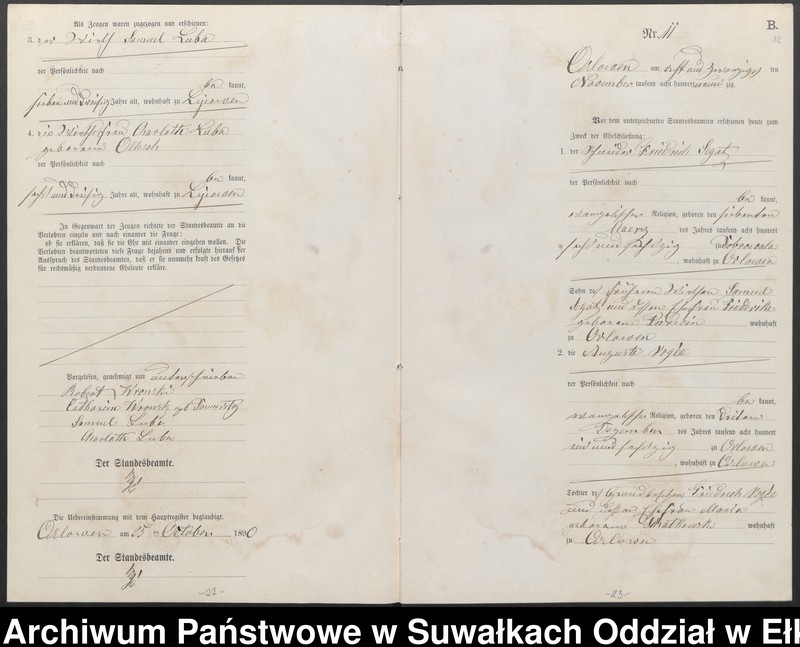 Als Zeugen waren zugezogen und erschienen:
3. der Wirth Samuel Luba
der Persönlichkeit nach
kannt,
sieben und dreißig Jahre alt, wohnhaft zu
4. die Wirthsfrau Charloth Luba
geborene
der Persönlichkeit nach
kannt,
und dreißig Jahre alt, wohnhaft zu
In Gegenwart der Zeugen richtete der Standesbeamte an die
Verlobten einzeln und nach einander die Frage:
ob sie erklären, daß sie die Ehe mit einander eingehen wollen. Die
Verlobten beantworteten diese Frage bejahend und erfolgte hierauf der
Ausspruch des Standesbeamten, daß er sie nunmehr kraft des Gesetzes
für rechtmäßig verbundene Eheleute erkläre.
Vorgelesen, genehmigt und unterschrieben
Robert Wronski
Catharina Wronski geb
Samuel Luba
Charloth Luba
Der Standesbeamte.
Die Uebereinstimmung mit dem Hauptregister beglaubigt.
Orlowen am 25 ten October 1890
Der Standesbeamte.
-22-
B.
Nr. 11
12
Orlowen am und zwanzigsten
November tausend acht hundert neunzig
Vor dem unterzeichneten Standesbeamten erschienen heute zum
Zweck der Eheschließung:
1. der Friedrich
der Persönlichkeit nach
kannt,
evangelischer Religion, geboren den siebenten
Maerz des Jahres tausend acht hundert
und sechszig zu
, wohnhaft zu Orlowen
Sohn des früheren Wirthen Samuel
und dessen Ehefrau Friedericke
geborene wohnhaft
zu Orlowen
2. die Auguste
der Persönlichkeit nach
kannt,
evangelischer Religion, geboren den dritten
Dezember des Jahres tausend acht hundert
ein und sechszig zu Orlowen
, wohnhaft zu Orlowen
Tochter des Friedrich
und dessen Ehefrau Maria
geborene wohnhaft
zu Orlowen
-23-
Archiwum Państwowe w Suwałkach Oddział w Ełk